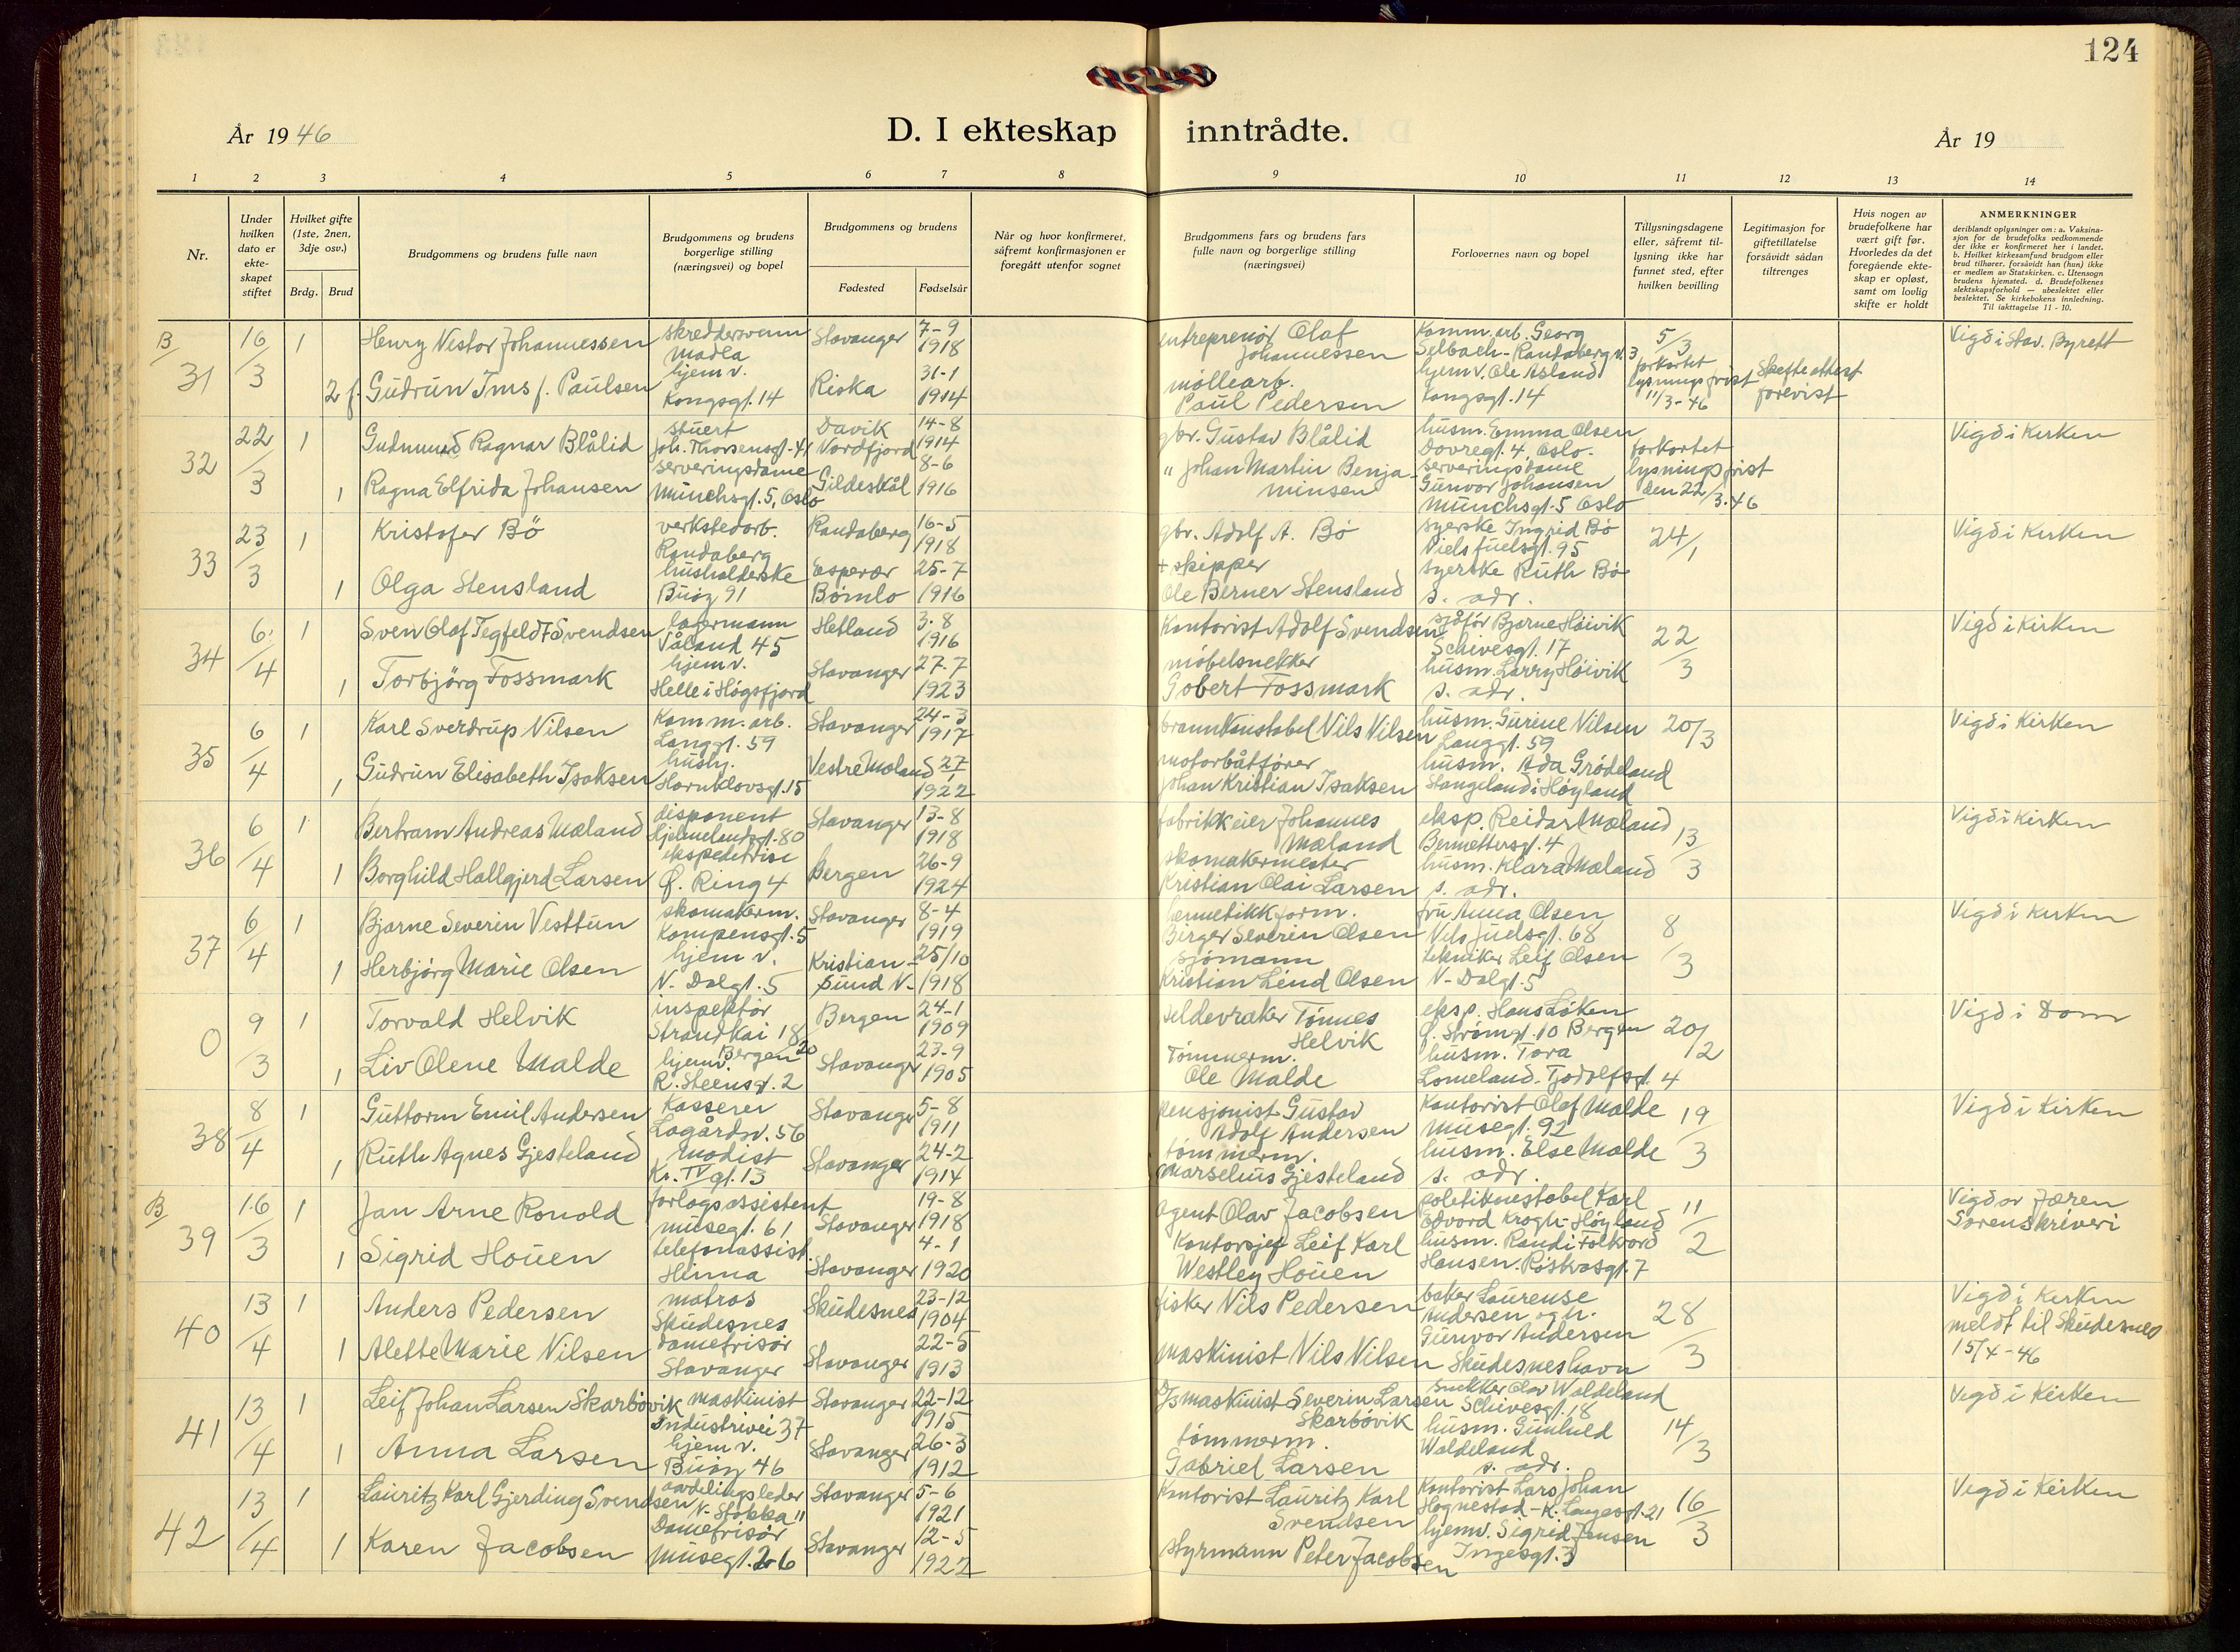 124
År 1946
D. I ekteskap inntrådte.
År 19
1 2 3 4 5 6 7 8 9 10 11 12 13 14
Nr.
Under hvilken dato er ekte-skapet stiftet
Hvilket gifte (1ste, 2nen, 3dje osv.)
Brdg. Brud
Brudgommens og brudens fulle navn
Brudgommens og brudens borgerlige stilling (næringsvei) og bopel
Brudgommens og brudens
Fødested Fødselsår
Når og hvor konfirmeret, såfremt konfirmasjonen er foregått utenfor sognet
Brudgommens fars og brudens fars fulle navn og borgerlige stilling (næringsvei)
Forlovernes navn og bopel
Tillysningsdagene eller, såfremt til-lysning ikke har funnet sted, efter hvilken bevilling
Legitimasjon for giftetillatelse forsåvidt sådan tiltrenges
Hvis nogen av brudefolkene har vært gift før. Hvorledes da det foregående ekte-skap er opløst, samt om lovlig skifte er holdt
ANMERKNINGER
deriblandt oplysninger om: a. Vaksina-sjon for de brudefolks vedkommende der ikke er konfirmeret her i landet. b. Hvilket kirkesamfund brudgom eller brud tilhører, forsåvidt han (hun) ikke er medlem av Statskirken. c. Utensogn brudens hjemsted. d. Brudefolkenes slektskapsforhold — ubeslektet eller beslektet. Se kirkebokens innledning. Til iakttagelse 11 - 10.
B/ 31
16/3
1
Henry Nestor Johannessen
skreddersvenn
Madla
Stavanger
7-9
1918
entreprenör Olaf
Johannessen
Komm. arb. Georg
Selbach - Randabergv. 3
5/3
Vigd i Stav. Byrett
2 f.
Gudrun Ims f. Paulsen
hjemv.
Kongsgt. 14
Riska
31-1
1914
möllearb.
Paul Pedersen
hjemv. Ole Åsland
Kongsgt. 14
forkortet
lysningsfrist
11/3-46
Skifteattest
forevist
32
22/3
1
Gudmund Ragnar Blålid
stuert
Joh. Thorsensgt. 41
Davik
Nordfjord
14-8
1914
gbr. Gustav Blålid
husm. Emma Olsen
Dovregt. 4, Oslo.
forkortet
lysningsfrist
den 22/3. 46
Vigd i Kirken
1
Ragna Elfrida Johansen
serveringsdame
Münchsgt. 5, Oslo
Gildeskål
8-6
1916
" Johan Martin Benja-
minsen
serveringsdame
Gunvor Johansen
Münchsgt. 5 Oslo
33
23/3
1
Kristofer Bö
verkstedarb.
Randaberg
Randaberg
16-5
1918
gbr. Adolf A. Bö
syerske Ingrid Bö
Niels Juelsgt. 95
24/1
Vigd i Kirken
1
Olga Stensland
husholderske
Buöy 91
Espevær
Bömlo
25-7
1916
+ skipper
Ole Berner Stensland
syerske Ruth Bö
s. adr.
34
6/4
1
Sven Olaf Tegfeldt Svendsen
lagermann
Våland 45
Hetland
3.8
1916
Kontorist Adolf Svendsen
sjåför Bjarne Höivik
Schivesgt. 17
22/3
Vigd i Kirken
1
Torbjörg Fossmark
hjemv.
Helle i Högsfjord
Stavanger
27.7
1923
möbelsnekker
Gobert Fossmark
husm. Larry Höivik
s. adr.
35
6/4
1
Karl Sverdrup Nilsen
Komm. arb.
Langgt. 59
Stavanger
24-3
1917
brannkonstabel Nils Nilsen
husm. Gurine Nilsen
Langgt. 59
20/3
Vigd i Kirken
1
Gudrun Elisabeth Isaksen
hushj.
Hornklovsgt. 15
Vestre Moland
27/1
1922
motorbåtförer
Johan Kristian Isaksen
husm. Ada Grödeland
Stangeland i Höyland
36
6/4
1
Bertram Andreas Mæland
disponent
Hjelmelandsgt. 80
Stavanger
13-8
1918
fabrikkeier Johannes
Mæland
eksp. Reidar Mæland
13/3
Vigd i Kirken
1
Borghild Hallgjerd Larsen
ekspeditrise
Bergen
26-9
1924
skomakermester
Kristian Olai Larsen
husm. Klara Mæland
s. adr.
37
6/4
1
Bjarne Severin Vesttun
skomakerm.
Kampensgt. 5
Stavanger
8-4
1919
hermetikkform.
Birger Severin Olsen
fru Anna Olsen
Nils Juelsgt. 68
8/3
Vigd i Kirken
1
Herbjörg Marie Olsen
hjem v.
N. Dalgt. 5
Kristian-
sund N.
25/10
1918
sjömann
Kristian Lind Olsen
tekniker Leif Olsen
N. Dalgt. 5
0
9/3
1
Torvald Helvik
inspektör
Strandkai 18
Bergen
Bergen
24-1
1909
sildevraker Tönnes
Helvik
eksp. Hans Løken
20/2
Vigd i Dom
1
Liv Olene Malde
hjemv.
R. Steensgt. 2
Stavanger
23-9
1905
Tömmerm.
Ole Malde
husm. Tora
Lomeland. Tjodolfsgt. 4
38
8/4
1
Guttorm Emil Andersen
Kasserer
Lagårdsv. 56
Stavanger
5-8
1911
pensjonist Gustav
Adolf Andersen
Kontorist Olaf Malde
Musegt. 92
19/3
Vigd i Kirken
1
Ruth Agnes Gjesteland
modist
Kr. IV gt. 13
Stavanger
24-2
1914
tömmerm.
Marselius Gjesteland
husm. Else Malde
s. adr.
B/ 39
16/3
1
Jan Arne Ronold
forlagsassistent
Musegt. 61
Stavanger
19-8
1918
agent Olav Jacobsen
politikonstabel Karl
Edvard Krogh - Höyland
11/2
Vigd av Jæren
Sorenskriveri
1
Sigrid Houen
telefonassist.
Hinna
Stavanger
4-1
1920
Kontorsjef Leif Karl
Westley Houen
husm. Randi Folkvord
Hansen. Röskvasgt. 7
40
13/4
1
Anders Pedersen
matros
Skudesnes
Skudesnes
23-12
1904
fisker Nils Pedersen
baker Laurense
Andersen og h.
28/3
Vigd i Kirken
meldt til Skudesnes
15/4-46
1
Alette Marie Nilsen
damefrisör
Stavanger
Stavanger
22-5
1913
maskinist Nils Nilsen
Gunvor Andersen
Skudesneshavn
41
13/4
1
Leif Johan Larsen Skarbövik
maskinist
Industrivei 37
Stavanger
22-12
1915
maskinist Severin Larsen
Skarbövik
snekker Olav Waldeland
Schivesgt. 18
14/3
Vigd i Kirken
1
Anna Larsen
hjem v.
Buöy 46
Stavanger
26-3
1912
tömmerm.
Gabriel Larsen
husm. Gunhild
Waldeland
s. adr.
42
13/4
1
Lauritz Karl Gjerding Svendsen
avdelingsleder
N. Stokka 11
Stavanger
5-6
1921
Kontorist Lauritz Karl
Svendsen
Kontorist Lars Johan
Hognestad - K. Langesgt. 21
16/3
Vigd i Kirken
1
Karen Jacobsen
Damefrisör
Musegt. 26
Stavanger
12-5
1922
styrmann Peter Jacobsen
hjemv. Sigrid Jensen
Ingesgt. 3